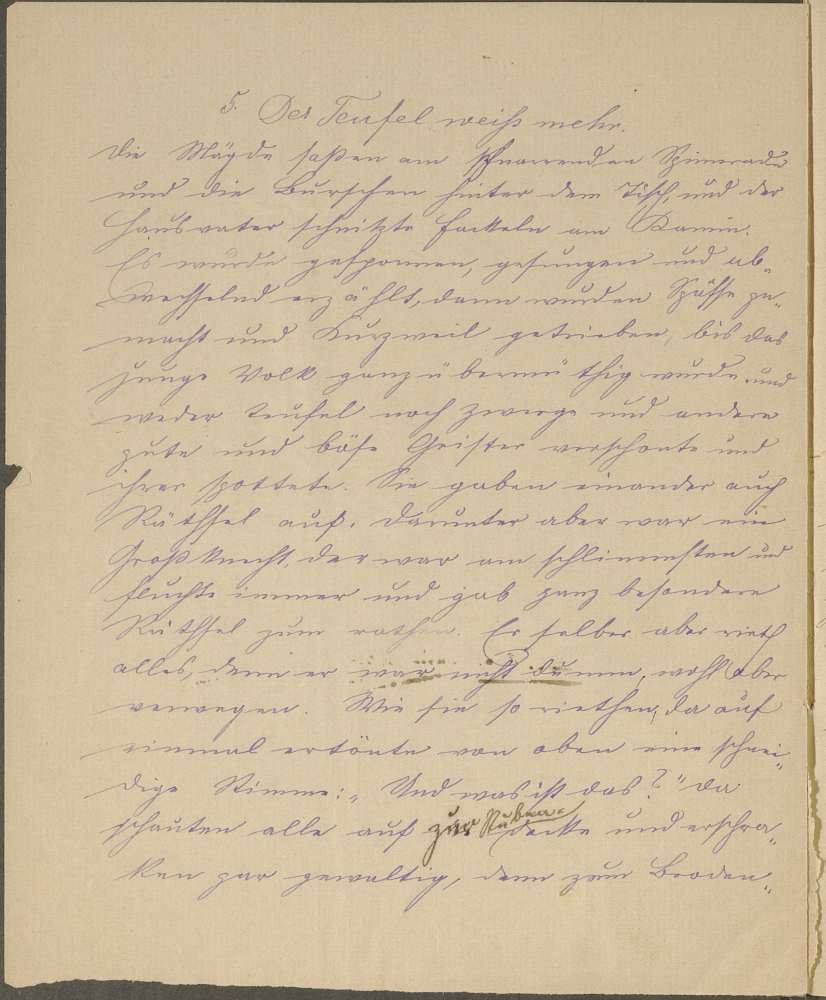 5. Der Teufel weiß mehr.
Die Mägde saßen am schnarrenden Spinnrade
und die Burschen hinter dem Tisch, und der
Hausvater schnitzte Fackeln am Kamin.
Es wurde gesponnen, gesungen und ab„
wechselnd erzählt, dann wurden Spässe ge„
macht und Kurzweil getrieben, bis das
junge Volk ganz übermüthig wurde und
weder Teufel noch Zwerge und andere
gute und böse Geister verschonte und
ihrer spottete. Sie gaben einander auch
Räthsel auf. Darunter aber war ein
Großknecht, der war am schlimmsten und
fluchte immer und gab ganz besondere
Räthsel zum rathen. Er selber aber rieth
alles, denn er war nicht dumm, wohl aber
verwegen. Wie sie so riethen, da auf
einmal ertönte von oben eine schnei„
dige Stimme: „Und was ist das?" Da
schauten alle auf zur Stuben=
decke und erschra„
ken gar gewaltig, denn zum Boden„